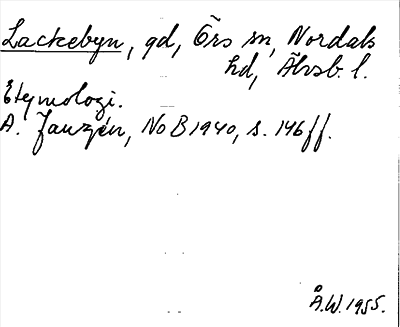 Lackebyn, gd, Örs sn, Nordals
hd, Älvsb. l.
Etymologi.
A. Janzén, NoB 1940, s. 146 ff.
Å.W. 1955.